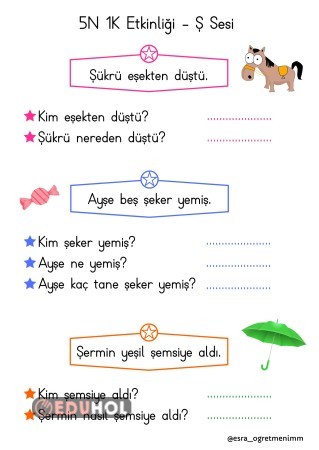 5N 1K Etkinliği - Ş Sesi
Şükrü eşekten düştü.
Kim eşekten düştü? ......................
Şükrü nereden düştü? ......................
Ayşe beş şeker yemiş.
Kim şeker yemiş? ......................
Ayşe ne yemiş? ......................
Ayşe kaç tane şeker yemiş? ......................
Şermin yeşil şemsiye aldı.
Kim şemsiye aldı? ......................
Şermin nasıl şemsiye aldı? ......................
EDUHOL
@esra_ogretmenimm